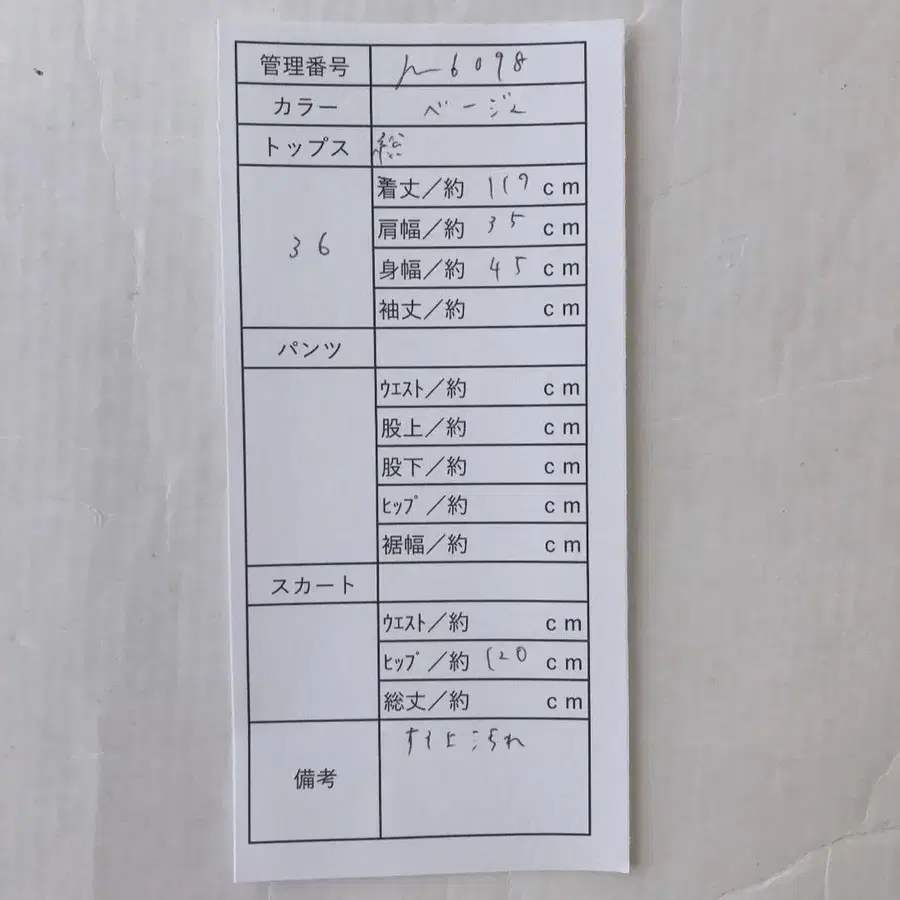 管理番号 h6098
カラー ベージュ
トップス 総
36
着丈／約 117 cm
肩幅／約 35 cm
身幅／約 45 cm
袖丈／約 cm
パンツ
ｳｴｽﾄ／約 cm
股上／約 cm
股下／約 cm
ﾋｯﾌﾟ／約 cm
裾幅／約 cm
スカート
ｳｴｽﾄ／約 cm
ﾋｯﾌﾟ／約 120 cm
総丈／約 cm
備考 汚れ